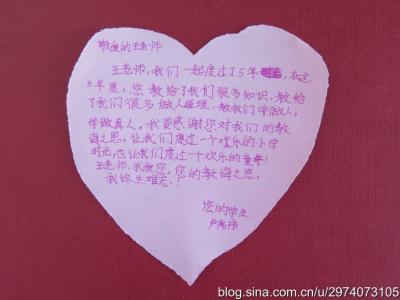 敬爱的王老师
王老师，我们一起度过了5年，在这
5年里，您教给了我们很多知识，教给
了我们很多做人道理，教我们学做人，
学做真人，我要感谢您对我们的教
诲之恩，让我们度过一个欢乐的小学
时光，也让我们度过一个欢乐的童年！
王老师，我爱您，您的教诲之恩，
我终生难忘！
您的学生
卢禹伟
blog.sina.com.cn/u/2974073105